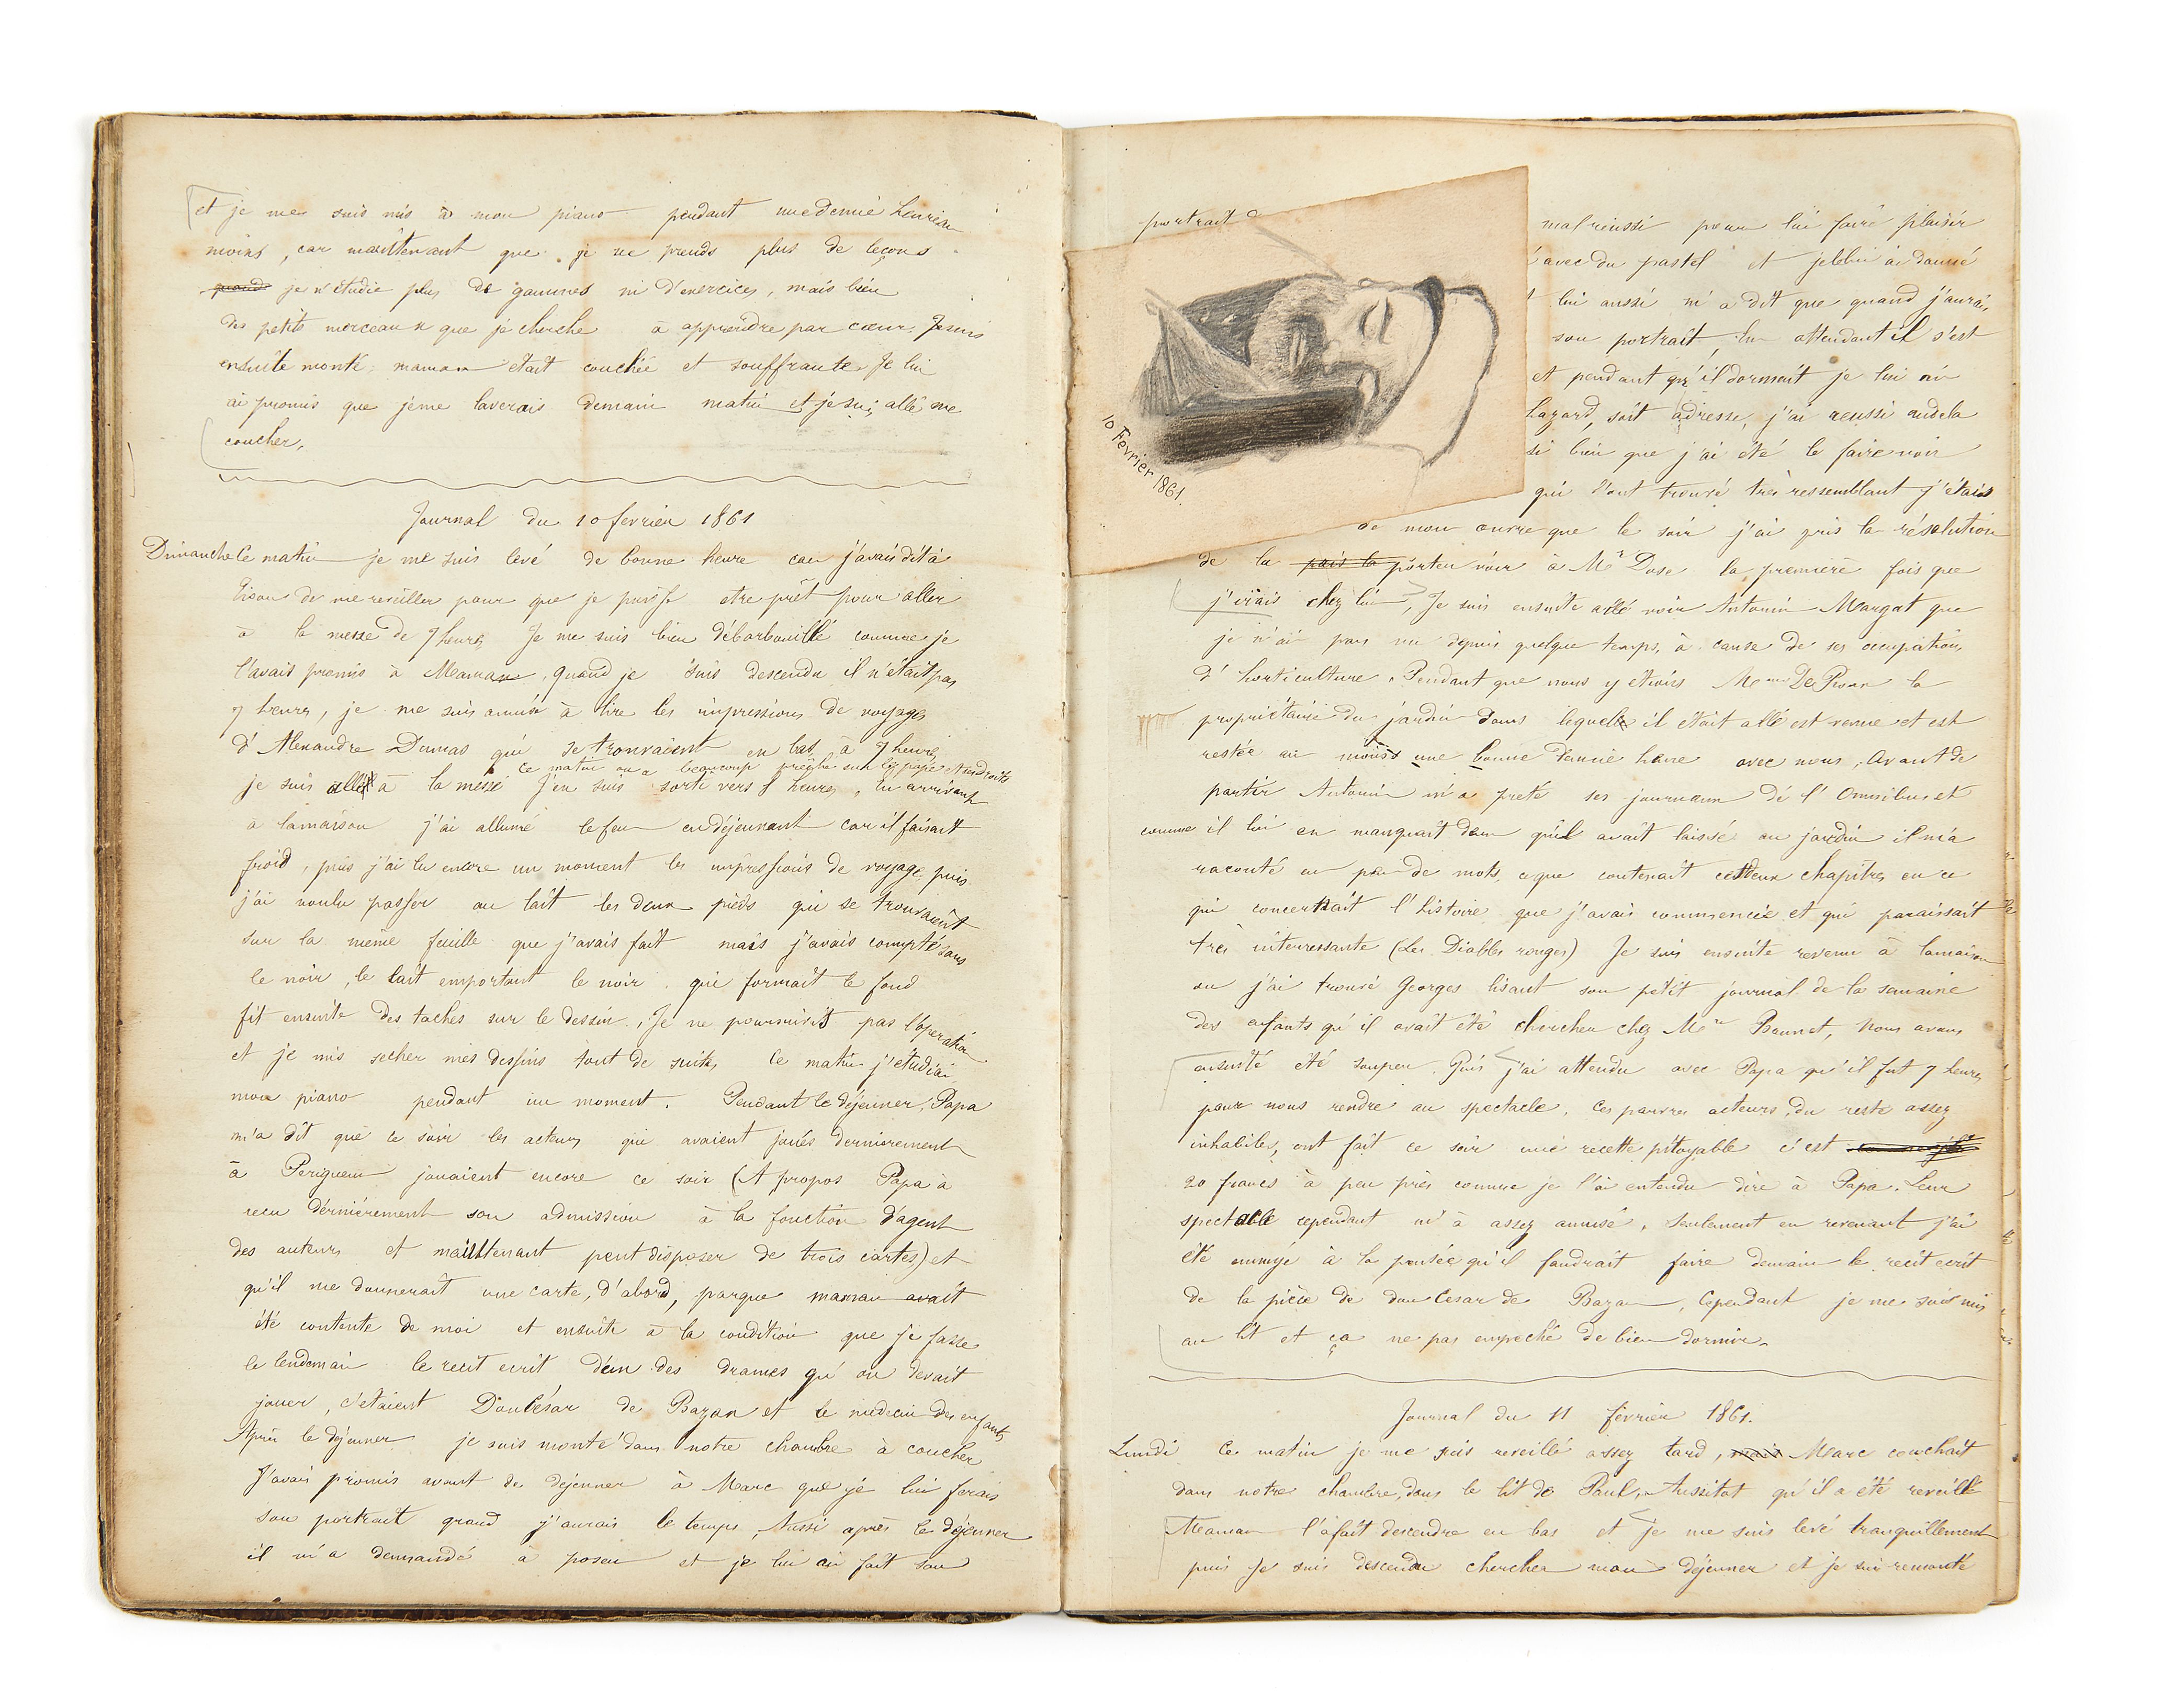 et je me suis mis à mon piano pendant une demie heure au
moins, car maintenant que je ne prends plus de leçons
quand je n'étudie plus de gammes ni d'exercices, mais bien
des petits morceaux que je cherche à apprendre par cœur. Je suis
ensuite monté, maman était couchée et souffrante. Je lui
ai promis que je me laverais demain matin et je suis allé me
coucher.
Journal du 10 fevrier 1861
Dimanche Ce matin je me suis levé de bonne heure car j'avais dit à
de me reveiller pour que je puisse etre prêt pour aller
à la messe de 7 heures Je me suis bien débarbouillé comme je
l'avais promis à Maman, quand je suis descendu il n'était pas
7 heures, je me suis amusé à lire les impressions de voyages
d'Alexandre Dumas qui se trouvaient en bas, à 7 heures
ce matin on a beaucoup prêché sur le pape
je suis allé à la messe J'en suis sorti vers 8 heures, en arrivant
à la maison j'ai allumé le feu en déjeunant car il faisait
froid, puis j'ai lu encore un moment les impressions de voyage puis
j'ai voulu passer au lait les deux pieds qui se trouvaient
sur la même feuille que j'avais fait mais j'avais compté sans
le noir, le lait emportant le noir qui formait le fond
fit ensuite des taches sur le dessin. Je ne poursuivis pas l'opération
et je mis secher mes dessins tout de suite, le matin j'étudiai
mon piano pendant un moment. Pendant le déjeuner, Papa
m'a dit que ce soir les acteurs qui avaient joués dernierement
à Perigueux jouaient encore ce soir (A propos Papa a
recu dernièrement son admission à la fonction d'agent
des auteurs et maintenant peut disposer de trois cartes) et
qu'il me donnerait une carte, d'abord, parque maman avait
été contente de moi et ensuite à la condition que je fasse
le lendemain le recit ecrit d'un des drames qu'on devait
jouer, c'etaient Don César de Bazan et le medecin des enfants
Après le déjeuner je suis monté dans notre chambre à coucher
J'avais promis avant de déjeuner à Marc que je lui ferais
son portrait quand j'aurais le temps, Aussi après le déjeuner
il m'a demandé à poser et je lui ai fait son
portrait
10 Fevrier 1861
mal reussi pour lui faire plaisir
avec du pastel et je le lui ai donné
lui aussi m'a dit que quand j'aurai
son portrait, En attendant il s'est
et pendant qu'il dormait je lui ai
hazard, soit adresse, j'ai reussi au dela
si bien que j'ai été le faire voir
qui l'ont trouvé très ressemblant j'étais
de mon œuvre que le soir j'ai pris la résolution
de la porter voir à Mr la première fois que
j'irais chez lui, Je suis ensuite allé voir Antonin Margat que
je n'ai pas vu depuis quelque temps, à cause de ses occupations
d'horticulture. Pendant que nous y etions Mme la
propriétaire du jardin dans lequel il était allé est venue et est
restée au moins une bonne demie heure avec nous, Avant de
partir Antonin m'a preté ses journaux de l'Omnibus et
comme il lui en manquait deux qu'il avait laissé au jardin il m'a
raconté en peu de mots, ce que contenait ces deux chapitres en ce
qui concernait l'histoire que j'avais commencée et qui paraissait
très interressante (Les Diables rouges) Je suis ensuite revenu à la maison
ou j'ai trouvé Georges lisant son petit journal de la semaine
des enfants qu'il avait été chercher chez Mme Bounet, Nous avons
ensuite été souper. Puis j'ai attendu avec Papa qu'il fut 7 heures
pour nous rendre au spectacle, Ces pauvres acteurs, du reste assez
inhabiles, ont fait ce soir une recette pitoyable c'est
20 francs à peu près comme je l'ai entendu dire à Papa. Leur
spectacle cependant m'a assez amusé, Seulement en revenant j'ai
été ennuyé à la pensée qu'il faudrait faire demain le recit ecrit
de la pièce de don Cesar de Bazan, Cependant je me suis mis
au lit et ça ne pas empeché de bien dormir.
Journal du 11 février 1861.
Lundi Ce matin je me suis reveillé assez tard, mais Marc couchait
dans notre chambre, dans le lit de Paul, Aussitot qu'il a été reveillé
Maman l'a fait descendre en bas et je me suis levé tranquillement
puis Je suis descendu chercher mon déjeuner et je suis remonté